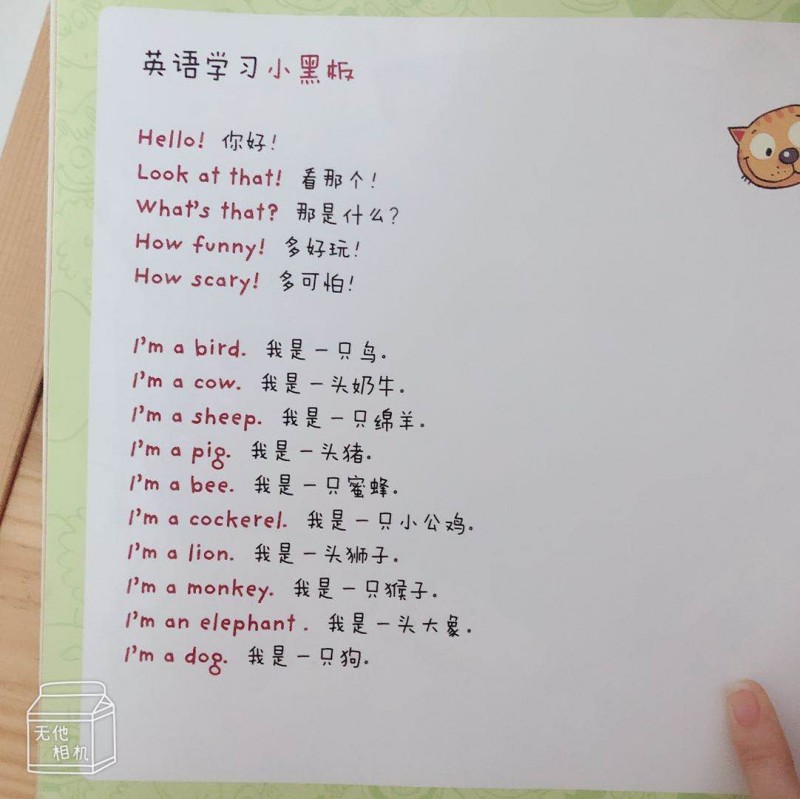 英语学习小黑板
Hello! 你好!
Look at that! 看那个!
What's that? 那是什么?
How funny! 多好玩!
How scary! 多可怕!
I'm a bird. 我是一只鸟。
I'm a cow. 我是一头奶牛。
I'm a sheep. 我是一只绵羊。
I'm a pig. 我是一头猪。
I'm a bee. 我是一只蜜蜂。
I'm a cockerel. 我是一只小公鸡。
I'm a lion. 我是一头狮子。
I'm a monkey. 我是一只猴子。
I'm an elephant . 我是一头大象。
I'm a dog. 我是一只狗。
无他
相机